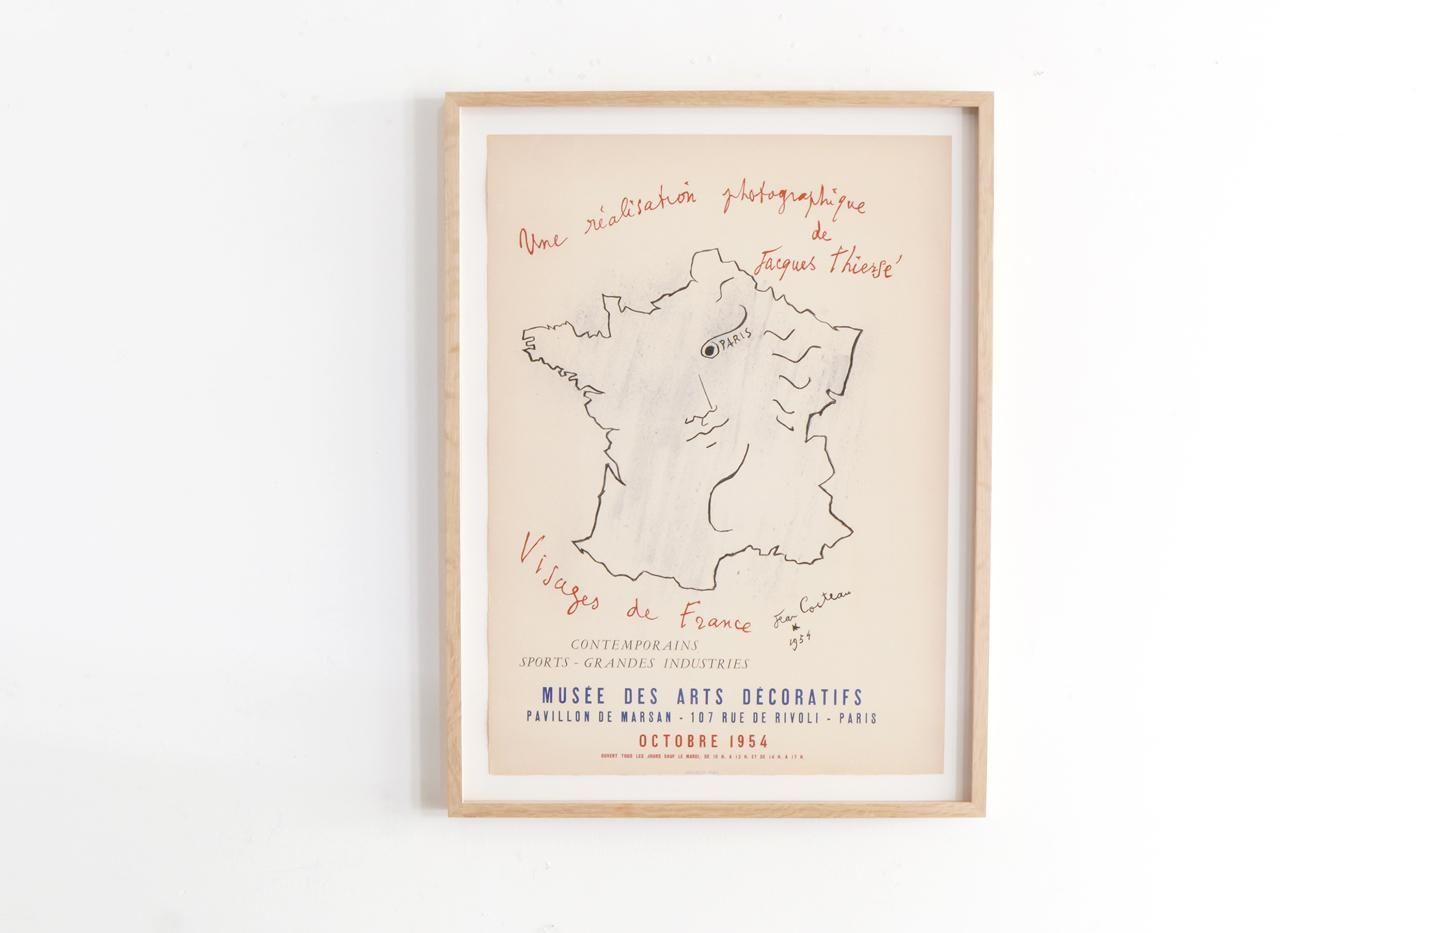 Une réalisation photographique
de
Jacques Thiersé
PARIS
Visages de France
Jean Cocteau
1954
CONTEMPORAINS
SPORTS - GRANDES INDUSTRIES
MUSÉE DES ARTS DÉCORATIFS
PAVILLON DE MARSAN - 107 RUE DE RIVOLI - PARIS
OCTOBRE 1954
OUVERT TOUS LES JOURS SAUF LE MARDI, DE 10 H. A 12 H. ET DE 14 H. A 17 H.